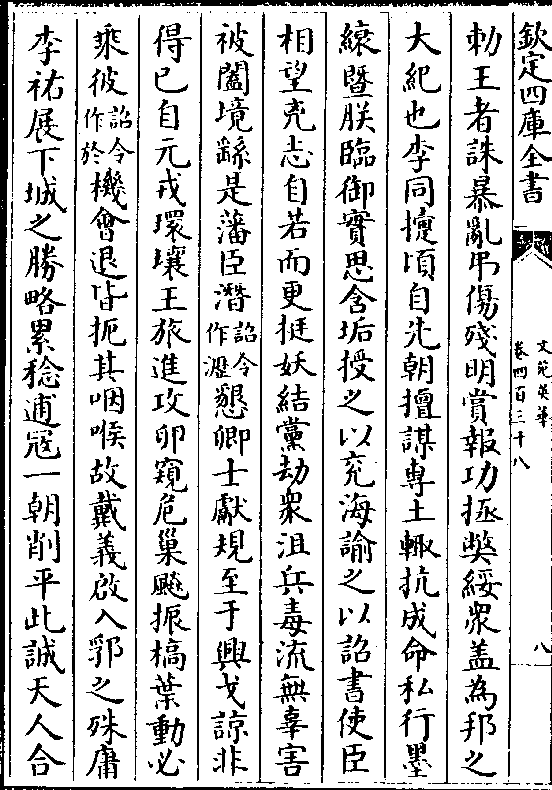 欽定四庫全書
文苑英華
卷四百三十八
八
勅王者誅暴亂弔傷殘明賞報功拯弊綏衆盖為邦之
大紀也李同擅頃自先朝擅謀專土輙抗成命私行墨
縗暨朕臨御實思含垢授之以兖海諭之以詔書使臣
相望兖志自若而更挺妖結黨劫衆沮兵毒流無辜害
被闔境繇是藩臣濳詔令作瀝懇卿士獻規至于興戈諒非
得已自元戎環壤王旅進攻卵窺危巢飈振槁葉動必
乘彼詔令作於機會退皆扼其咽喉故戴義啟入鄆之殊庸
李祐展下城之勝略累稔逋冦一朝削平此誠天人合